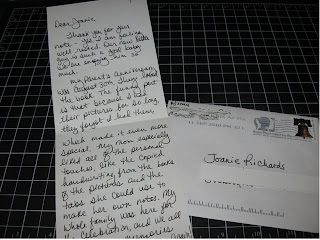 Dear Joanie,
Thank you for your
note. Yes, I am feeling
well rested. Our new little
boy is such a good baby,
we are enjoying him so
much.
My parent's Anniversary
was August 30th. They loved
the book. The funny part
is that because I had
their pictures for so long,
they forgot I had them,
Which made it even more
special. My mom especially
liked all of the personal
touches, like the copied
handwriting from the backs
of the pictures and the
tabs she could use to
make her own notes. My
whole family was here for
the celebration, and we all
memories
Joanie Richards